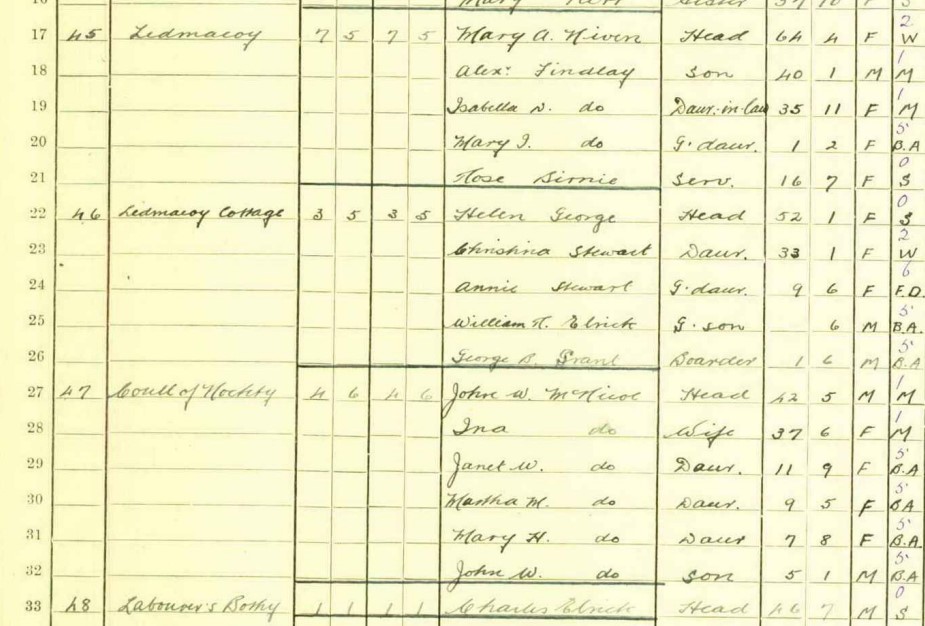 16 Mary Kerr Sister 37 10 F S
2
17 45 Ledmacoy 7 5 7 5 Mary A. Niven Head 64 4 F W
1
18 Alexr. Findlay Son 40 1 M M
1
19 Isabella N. do Daur-in-law 35 11 F M
5
20 Mary I. do G. daur. 1 2 F B.A
0
21 Rose Birnie Serv. 16 7 F S
0
22 46 Ledmacoy Cottage 3 5 3 5 Helen George Head 52 1 F S
2
23 Christina Stewart Daur. 33 1 F W
6
24 Annie Stewart G. daur. 9 6 F F.D.
5
25 William Elrick G. son 6 M B.A.
5
26 George B. Grant Boarder 1 6 M B.A
1
27 47 Coull of 4 6 4 6 John W. McNicol Head 42 5 M M
1
28 Ina do Wife 37 6 F M
5
29 Janet W. do Daur. 11 9 F B.A
5
30 Martha M. do Daur. 9 5 F BA
5
31 Mary H. do Daur 7 8 F B.A.
5
32 John W. do Son 5 1 M B.A
0
33 48 Labourer's Bothy 1 1 1 1 Charles Elrick Head 46 7 M S